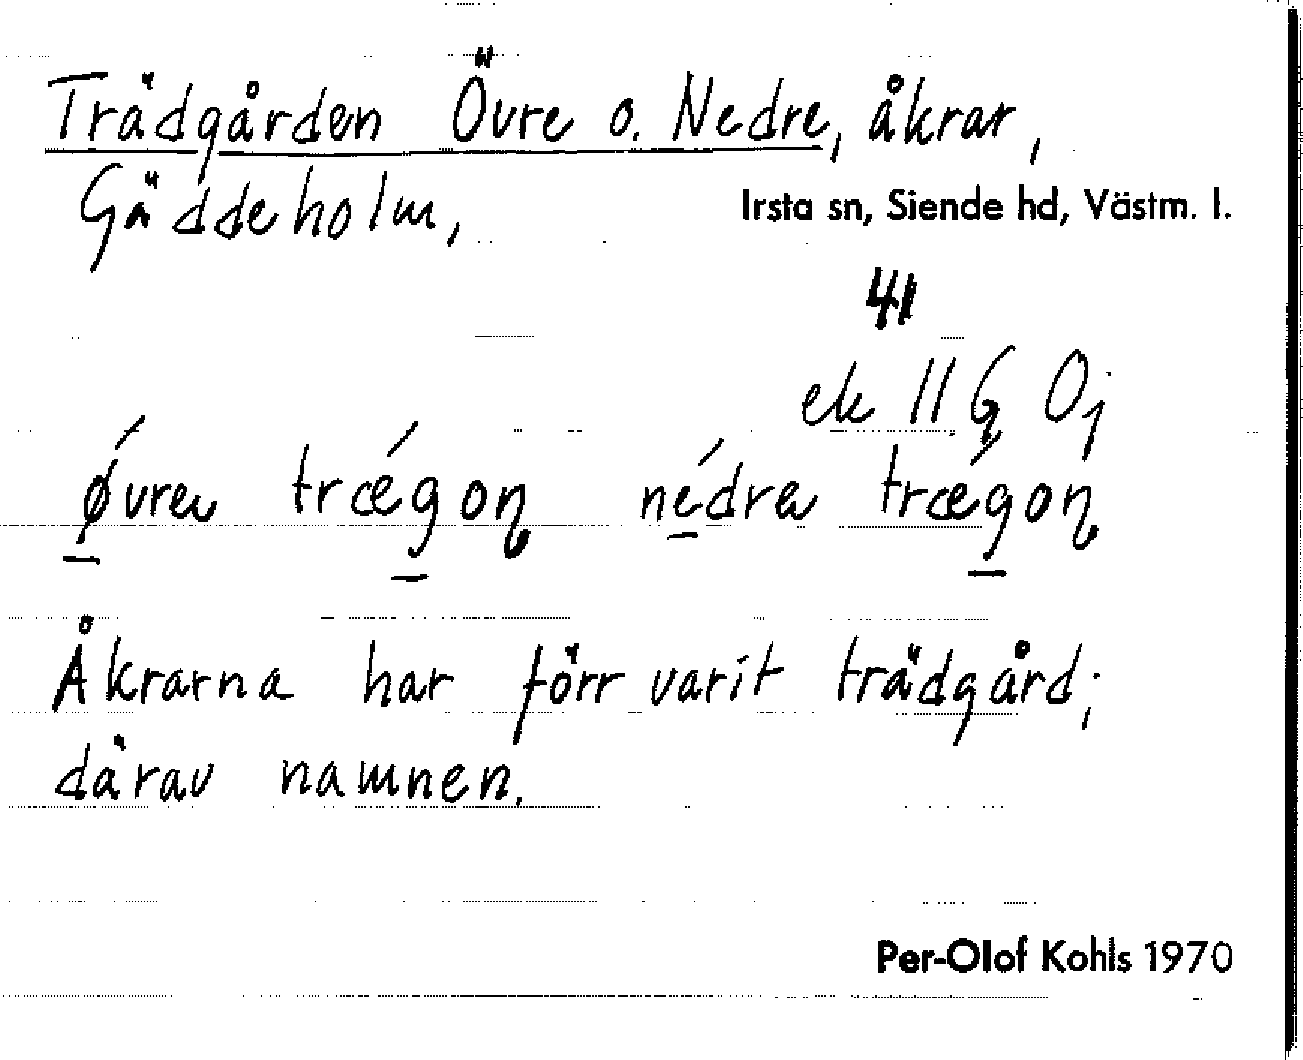 Trädgården Övre o. Nedre, åkrar,
Gäddeholm,
Irsta sn, Siende hd, Västm. l.
41
ek 11G 0j
ǿvrea trǽgoꞃ nédrea trǽgoꞃ
Åkrarna har förr varit trädgård;
därav namnen.
Per-Olof Kohls 1970